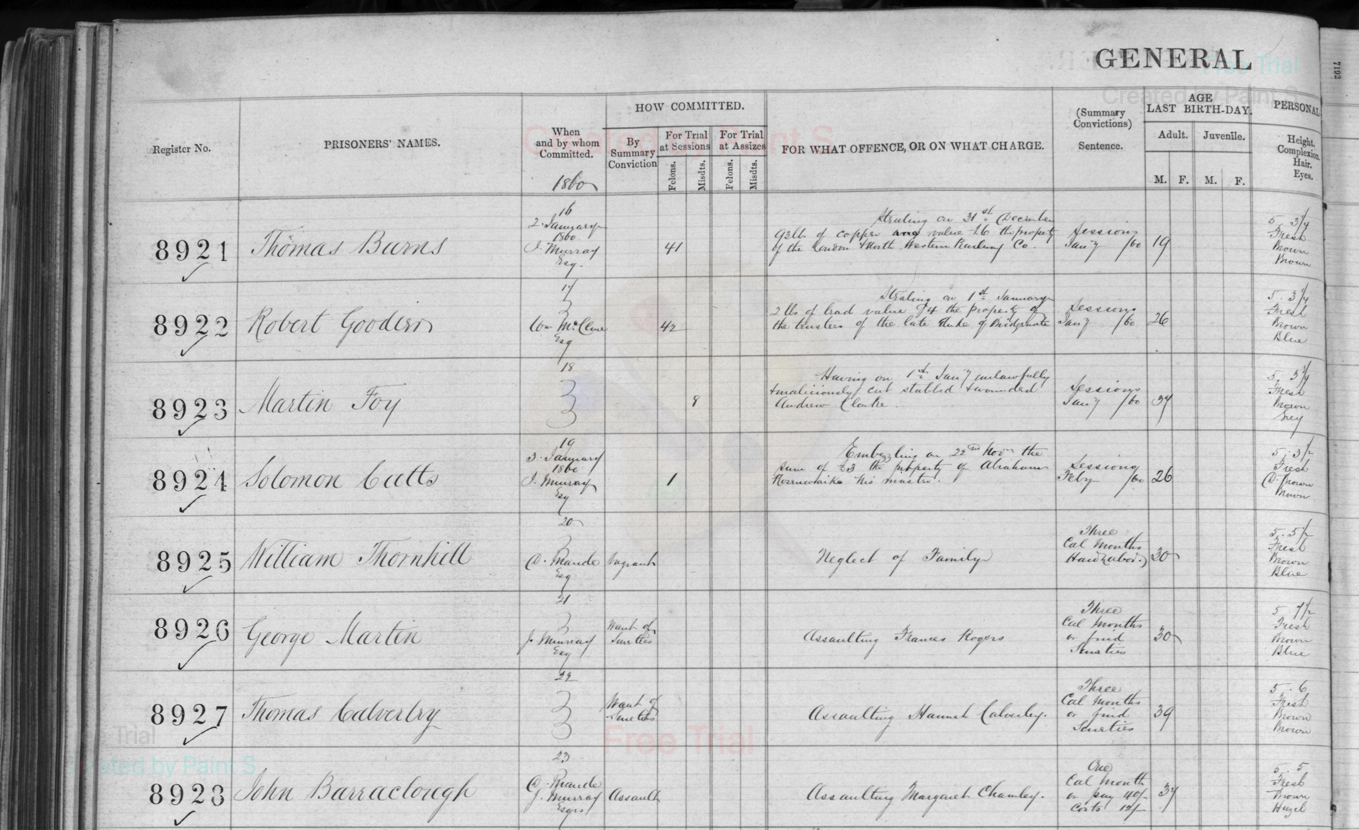 GENERAL
7192
Register No.
PRISONERS' NAMES.
When
and by whom
Committed.
1860
HOW COMMITTED.
By
Summary
Conviction
For Trial
at Sessions
For Trial
at Assizes
Felons.
Misdts.
Felons.
Misdts.
FOR WHAT OFFENCE, OR ON WHAT CHARGE.
(Summary
Convictions)
Sentence.
AGE
LAST BIRTH-DAY.
Adult.
Juvenile.
M.
F.
M.
F.
PERSONAL
Height.
Complexion.
Hair.
Eyes.
8921
Thomas Barns
16
2 January
1860
J. Murray
Esq.
41
Stealing on 31st December
92lb of copper value £6 the property
of the London & North Western Railway Co.
Sessions
Jany /60
19
Fresh
Brown
Brown
8922
Robert Gooden
17
3
Esq
42
Stealing on 1st January
2 lbs of lead value the property of
the trustees of the late Duke of Bridgewater
Sessions
Jany /60
26
Fresh
Brown
Blue
8923
Martin Foy
18
3
3
8
Having on 1st Jany unlawfully
& maliciously cut stabbed & wounded
Andrew
Sessions
Jany /60
Fresh
Brown
Grey
8924
Solomon Cutts
19
3 January
1860
J. Murray
Esq
1
on 22nd Novr the
sum of £3 the property of Abraham
his master.
Sessions
Feby /60
26
Fresh
Brown
Brown
8925
William Thornhill
20
3
C. Maude
Esq
Vagrant
Neglect of Family
Three
Cal Months
Hard Labor
30
5 . 5 1/2
Fresh
Brown
Blue
8926
George Martin
21
3
J. Murray
Esq
Want of
Sureties
Assaulting Frances Rogers
Three
Cal months
or find
Sureties
30
Fresh
Brown
Blue
8927
Thomas Calverley
22
3
3
Want of
Sureties
Assaulting Hannah Calverley.
Three
Cal months
or find
Sureties
39
5 . 6
Fresh
Brown
Brown
8928
John Barraclough
23
C. Maude
J. Murray
Esqrs
Assault
Assaulting Margaret
One
Cal Month
or pay 40/-
Costs
37
5 . 5
Fresh
Brown
Hazel
Free Trial
Created by Paint S